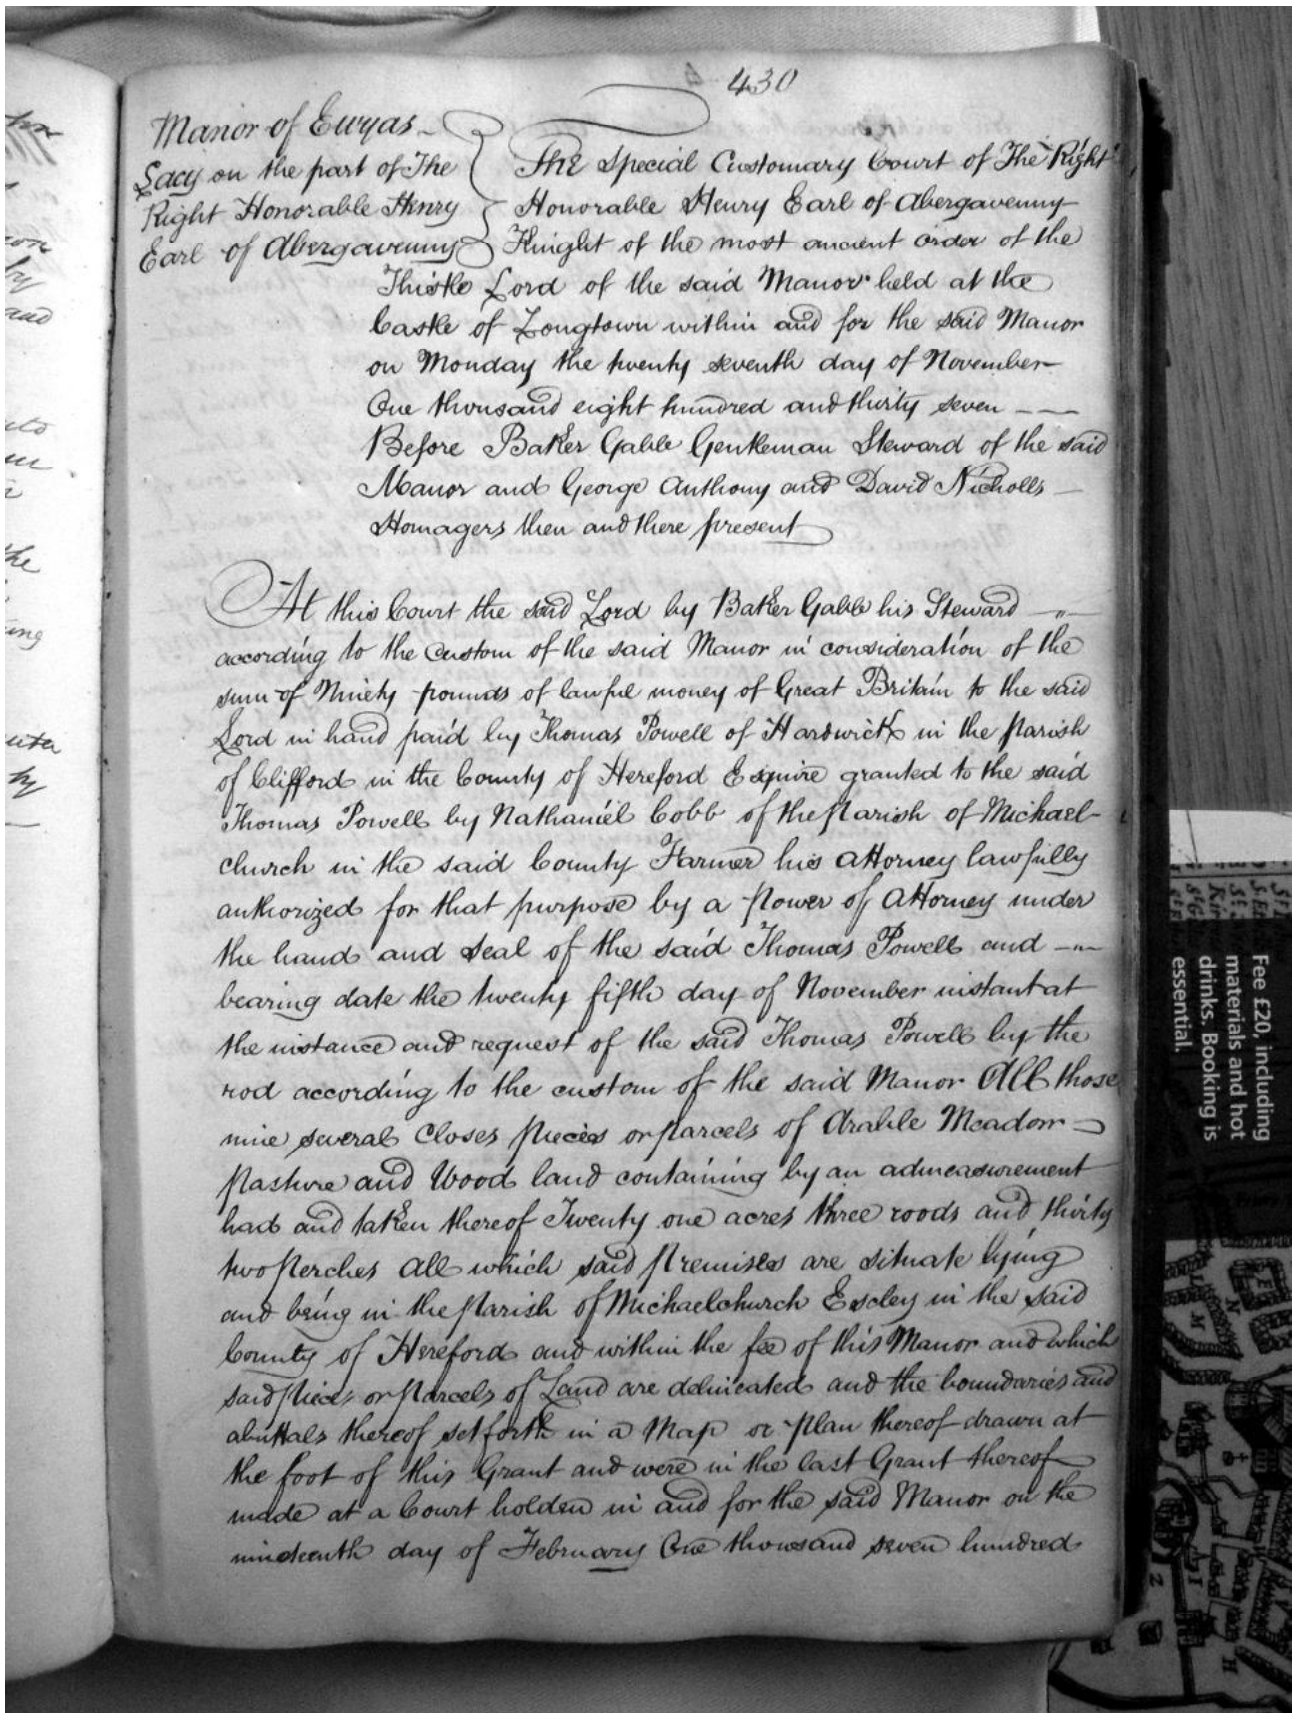 430
Manor of Ewyas
Lacy on the part of The
Right Honorable Henry
Earl of Abergavenny
The Special Customary Court of The Right
Honorable Henry Earl of Abergavenny
Knight of the most ancient order of the
Thistle Lord of the said Manor held at the
Castle of Longtown within and for the said Manor
on Monday the twenty seventh day of November
One thousand eight hundred and thirty seven
Before Baker Gabb Gentleman Steward of the said
Manor and George Anthony and David Nicholls
Homagers then and there present
At this Court the said Lord by Baker Gabb his Steward
according to the custom of the said Manor in consideration of the
sum of Ninety pounds of lawful money of Great Britain to the said
Lord in hand paid by Thomas Powell of Hardwick in the parish
of Clifford in the County of Hereford Esquire granted to the said
Thomas Powell by Nathaniel Cobb of the Parish of Michael-
church in the said County Farmer his attorney lawfully
authorized for that purpose by a power of attorney under
the hand and seal of the said Thomas Powell and
bearing date the twenty fifth day of November instant at
the instance and request of the said Thomas Powell by the
rod according to the custom of the said Manor All those
nine several Closes pieces or parcels of Arable Meadow
Pasture and Wood land containing by an admeasurement
had and taken thereof Twenty one acres three roods and thirty
two perches All which said premises are situate lying
and being in the parish of Michaelchurch Escley in the said
County of Hereford and within the fee of this Manor and which
said pieces or parcels of Land are delineated and the boundaries and
abuttals thereof set forth in a Map or plan thereof drawn at
the foot of this Grant and were in the last Grant thereof
made at a Court holden in and for the said Manor on the
nineteenth day of February One thousand seven hundred
Fee £20, including
materials and hot
drinks. Booking is
essential.